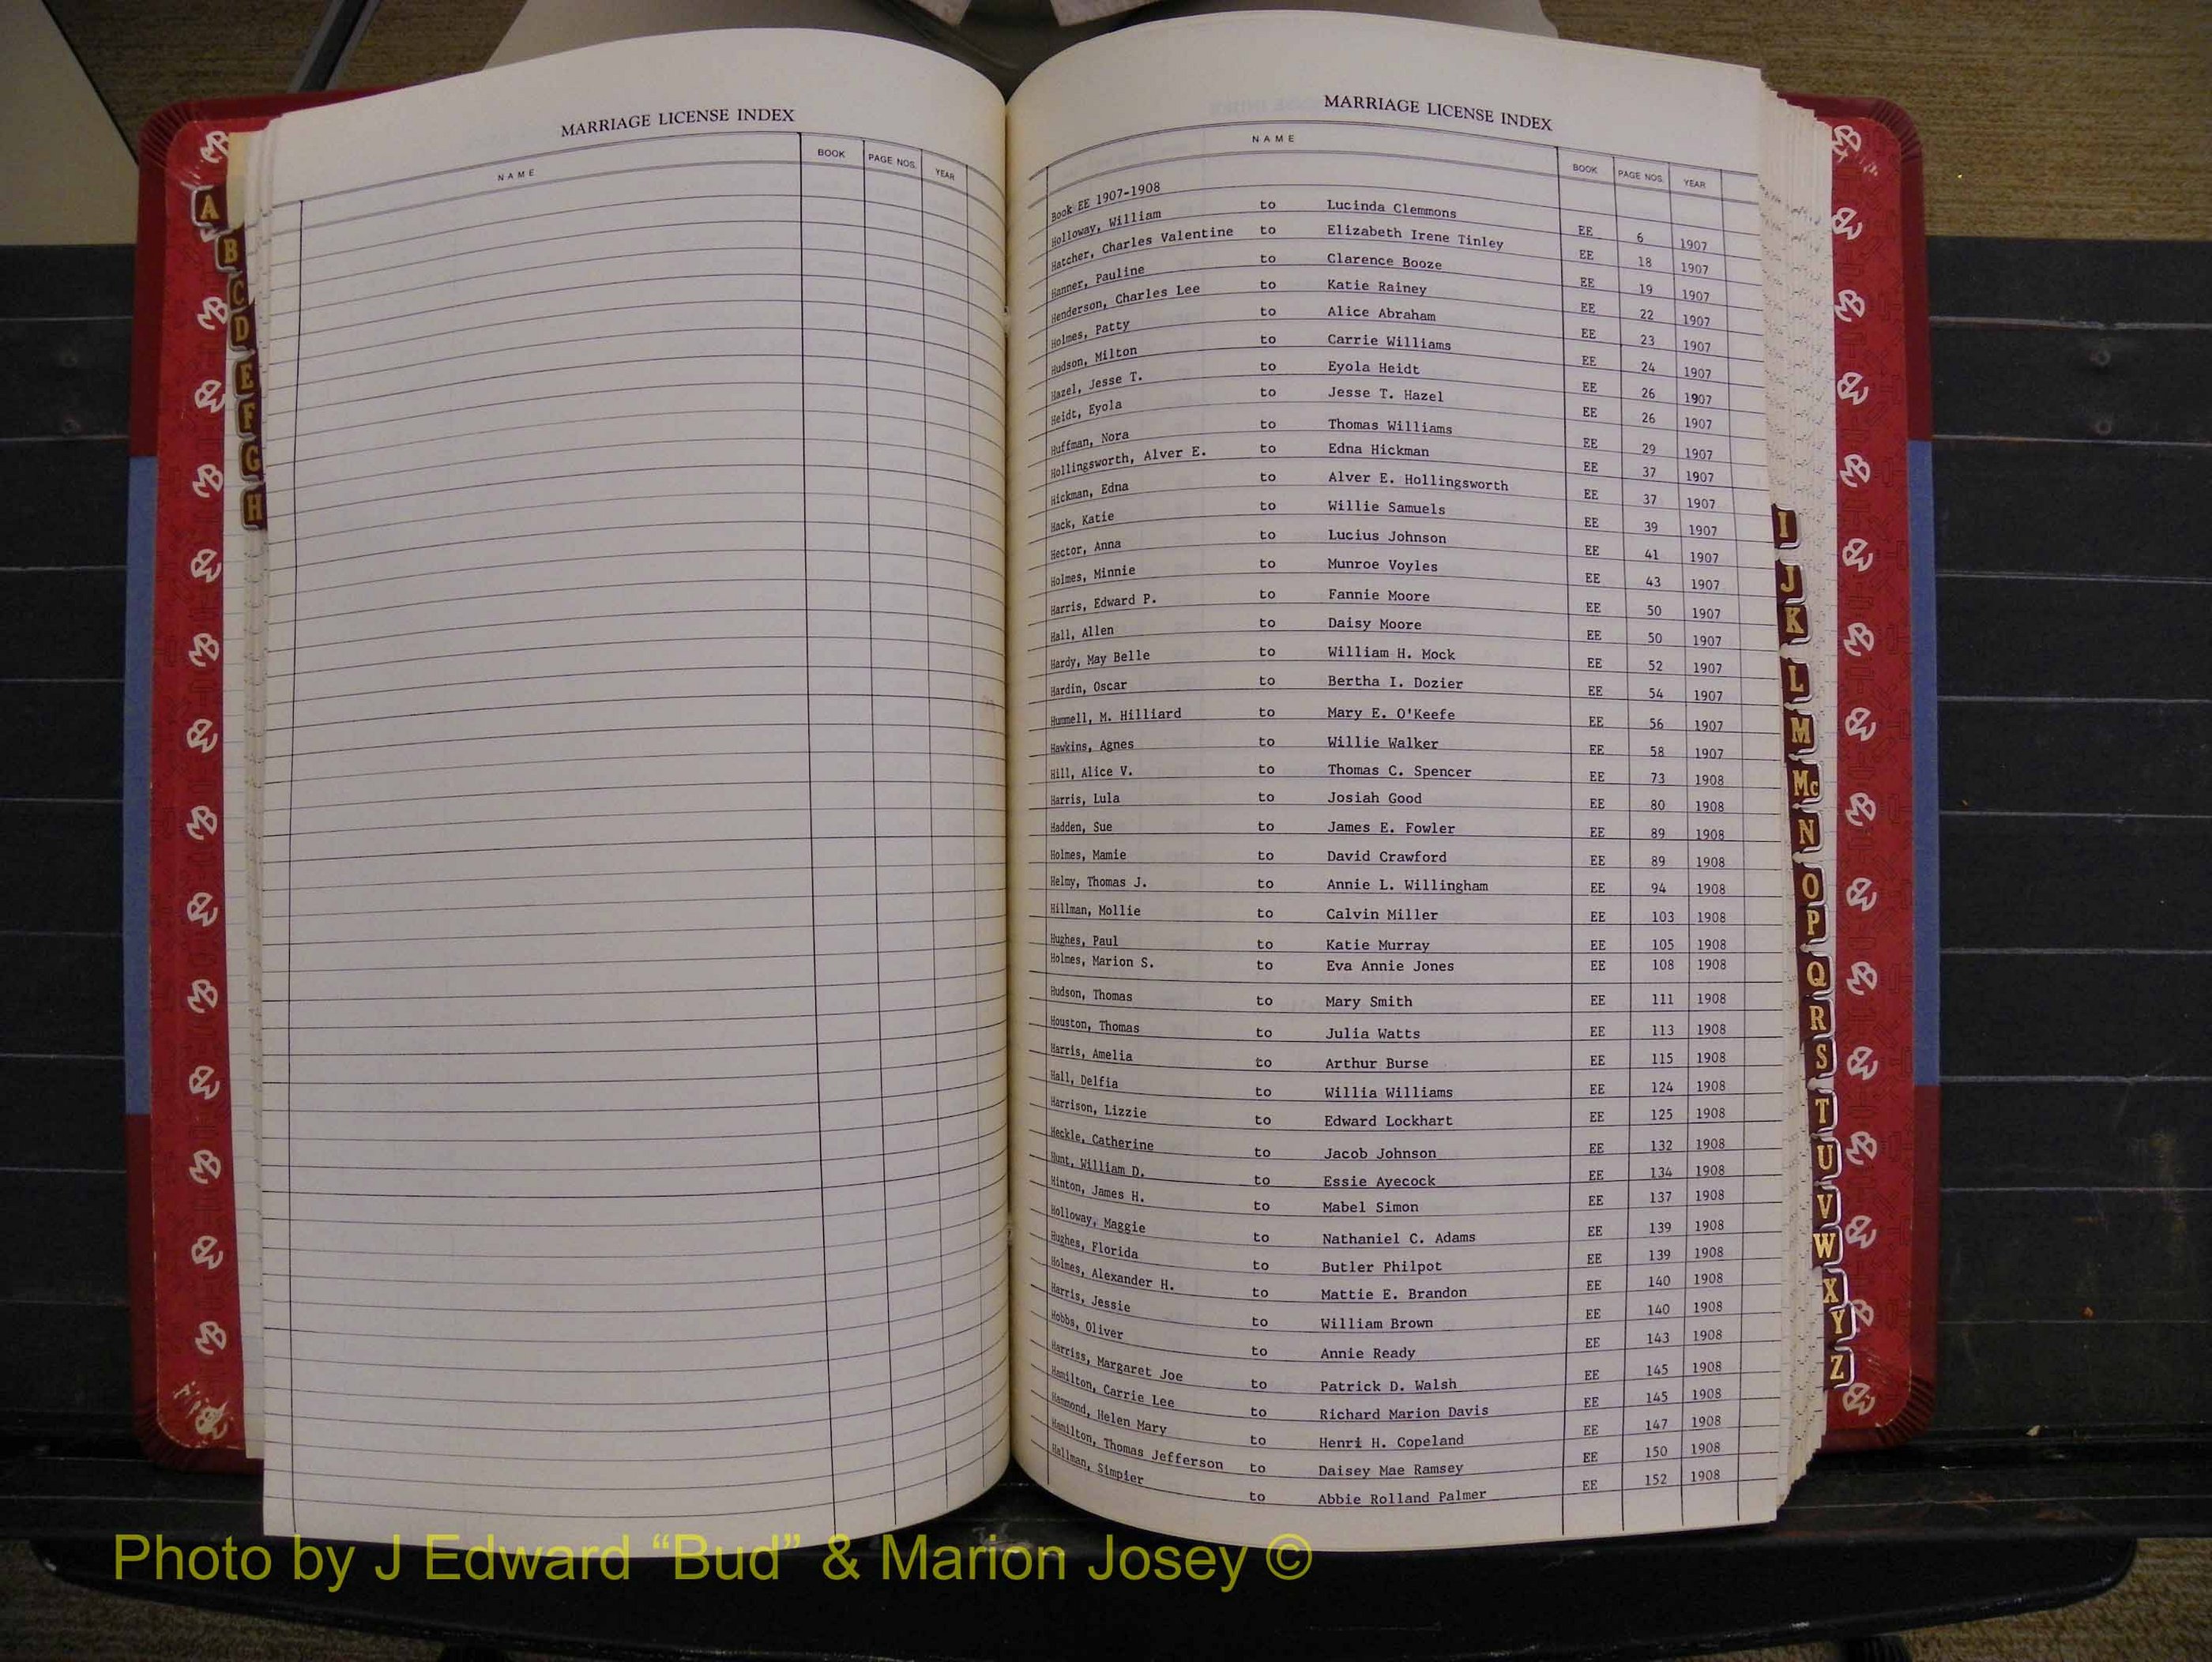 MARRIAGE LICENSE INDEX
NAME BOOK PAGE NOS. YEAR
A
B
C
D
E
F
G
H
MARRIAGE LICENSE INDEX
NAME BOOK PAGE NOS. YEAR
Book EE 1907-1908
Holloway, William to Lucinda Clemmons EE 6 1907
Hatcher, Charles Valentine to Elizabeth Irene Tinley EE 18 1907
Hanner, Pauline to Clarence Booze EE 19 1907
Henderson, Charles Lee to Katie Rainey EE 22 1907
Holmes, Patty to Alice Abraham EE 23 1907
Hudson, Milton to Carrie Williams EE 24 1907
Hazel, Jesse T. to Eyola Heidt EE 26 1907
Heidt, Eyola to Jesse T. Hazel EE 26 1907
Huffman, Nora to Thomas Williams EE 29 1907
Hollingsworth, Alver E. to Edna Hickman EE 37 1907
Hickman, Edna to Alver E. Hollingsworth EE 37 1907
Hack, Katie to Willie Samuels EE 39 1907
Hector, Anna to Lucius Johnson EE 41 1907
Holmes, Minnie to Munroe Voyles EE 43 1907
Harris, Edward P. to Fannie Moore EE 50 1907
Hall, Allen to Daisy Moore EE 50 1907
Hardy, May Belle to William H. Mock EE 52 1907
Hardin, Oscar to Bertha I. Dozier EE 54 1907
Hummell, M. Hilliard to Mary E. O'Keefe EE 56 1907
Hawkins, Agnes to Willie Walker EE 58 1907
Hill, Alice V. to Thomas C. Spencer EE 73 1908
Harris, Lula to Josiah Good EE 80 1908
Hadden, Sue to James E. Fowler EE 89 1908
Holmes, Mamie to David Crawford EE 89 1908
Helmy, Thomas J. to Annie L. Willingham EE 94 1908
Hillman, Mollie to Calvin Miller EE 103 1908
Hughes, Paul to Katie Murray EE 105 1908
Holmes, Marion S. to Eva Annie Jones EE 108 1908
Hudson, Thomas to Mary Smith EE 111 1908
Houston, Thomas to Julia Watts EE 113 1908
Harris, Amelia to Arthur Burse EE 115 1908
Hall, Delfia to Willia Williams EE 124 1908
Harrison, Lizzie to Edward Lockhart EE 125 1908
Heckle, Catherine to Jacob Johnson EE 132 1908
Hunt, William D. to Essie Ayecock EE 134 1908
Hinton, James H. to Mabel Simon EE 137 1908
Holloway, Maggie to Nathaniel C. Adams EE 139 1908
Hughes, Florida to Butler Philpot EE 139 1908
Holmes, Alexander H. to Mattie E. Brandon EE 140 1908
Harris, Jessie to William Brown EE 140 1908
Hobbs, Oliver to Annie Ready EE 143 1908
Harriss, Margaret Joe to Patrick D. Walsh EE 145 1908
Hamilton, Carrie Lee to Richard Marion Davis EE 145 1908
Hammond, Helen Mary to Henri H. Copeland EE 147 1908
Hamilton, Thomas Jefferson to Daisey Mae Ramsey EE 150 1908
Hallman, Simpier to Abbie Rolland Palmer EE 152 1908
I
J
K
L
M
Mc
N
O
P
Q
R
S
T
U
V
W
X
Y
Z
Photo by J Edward “Bud” & Marion Josey ©